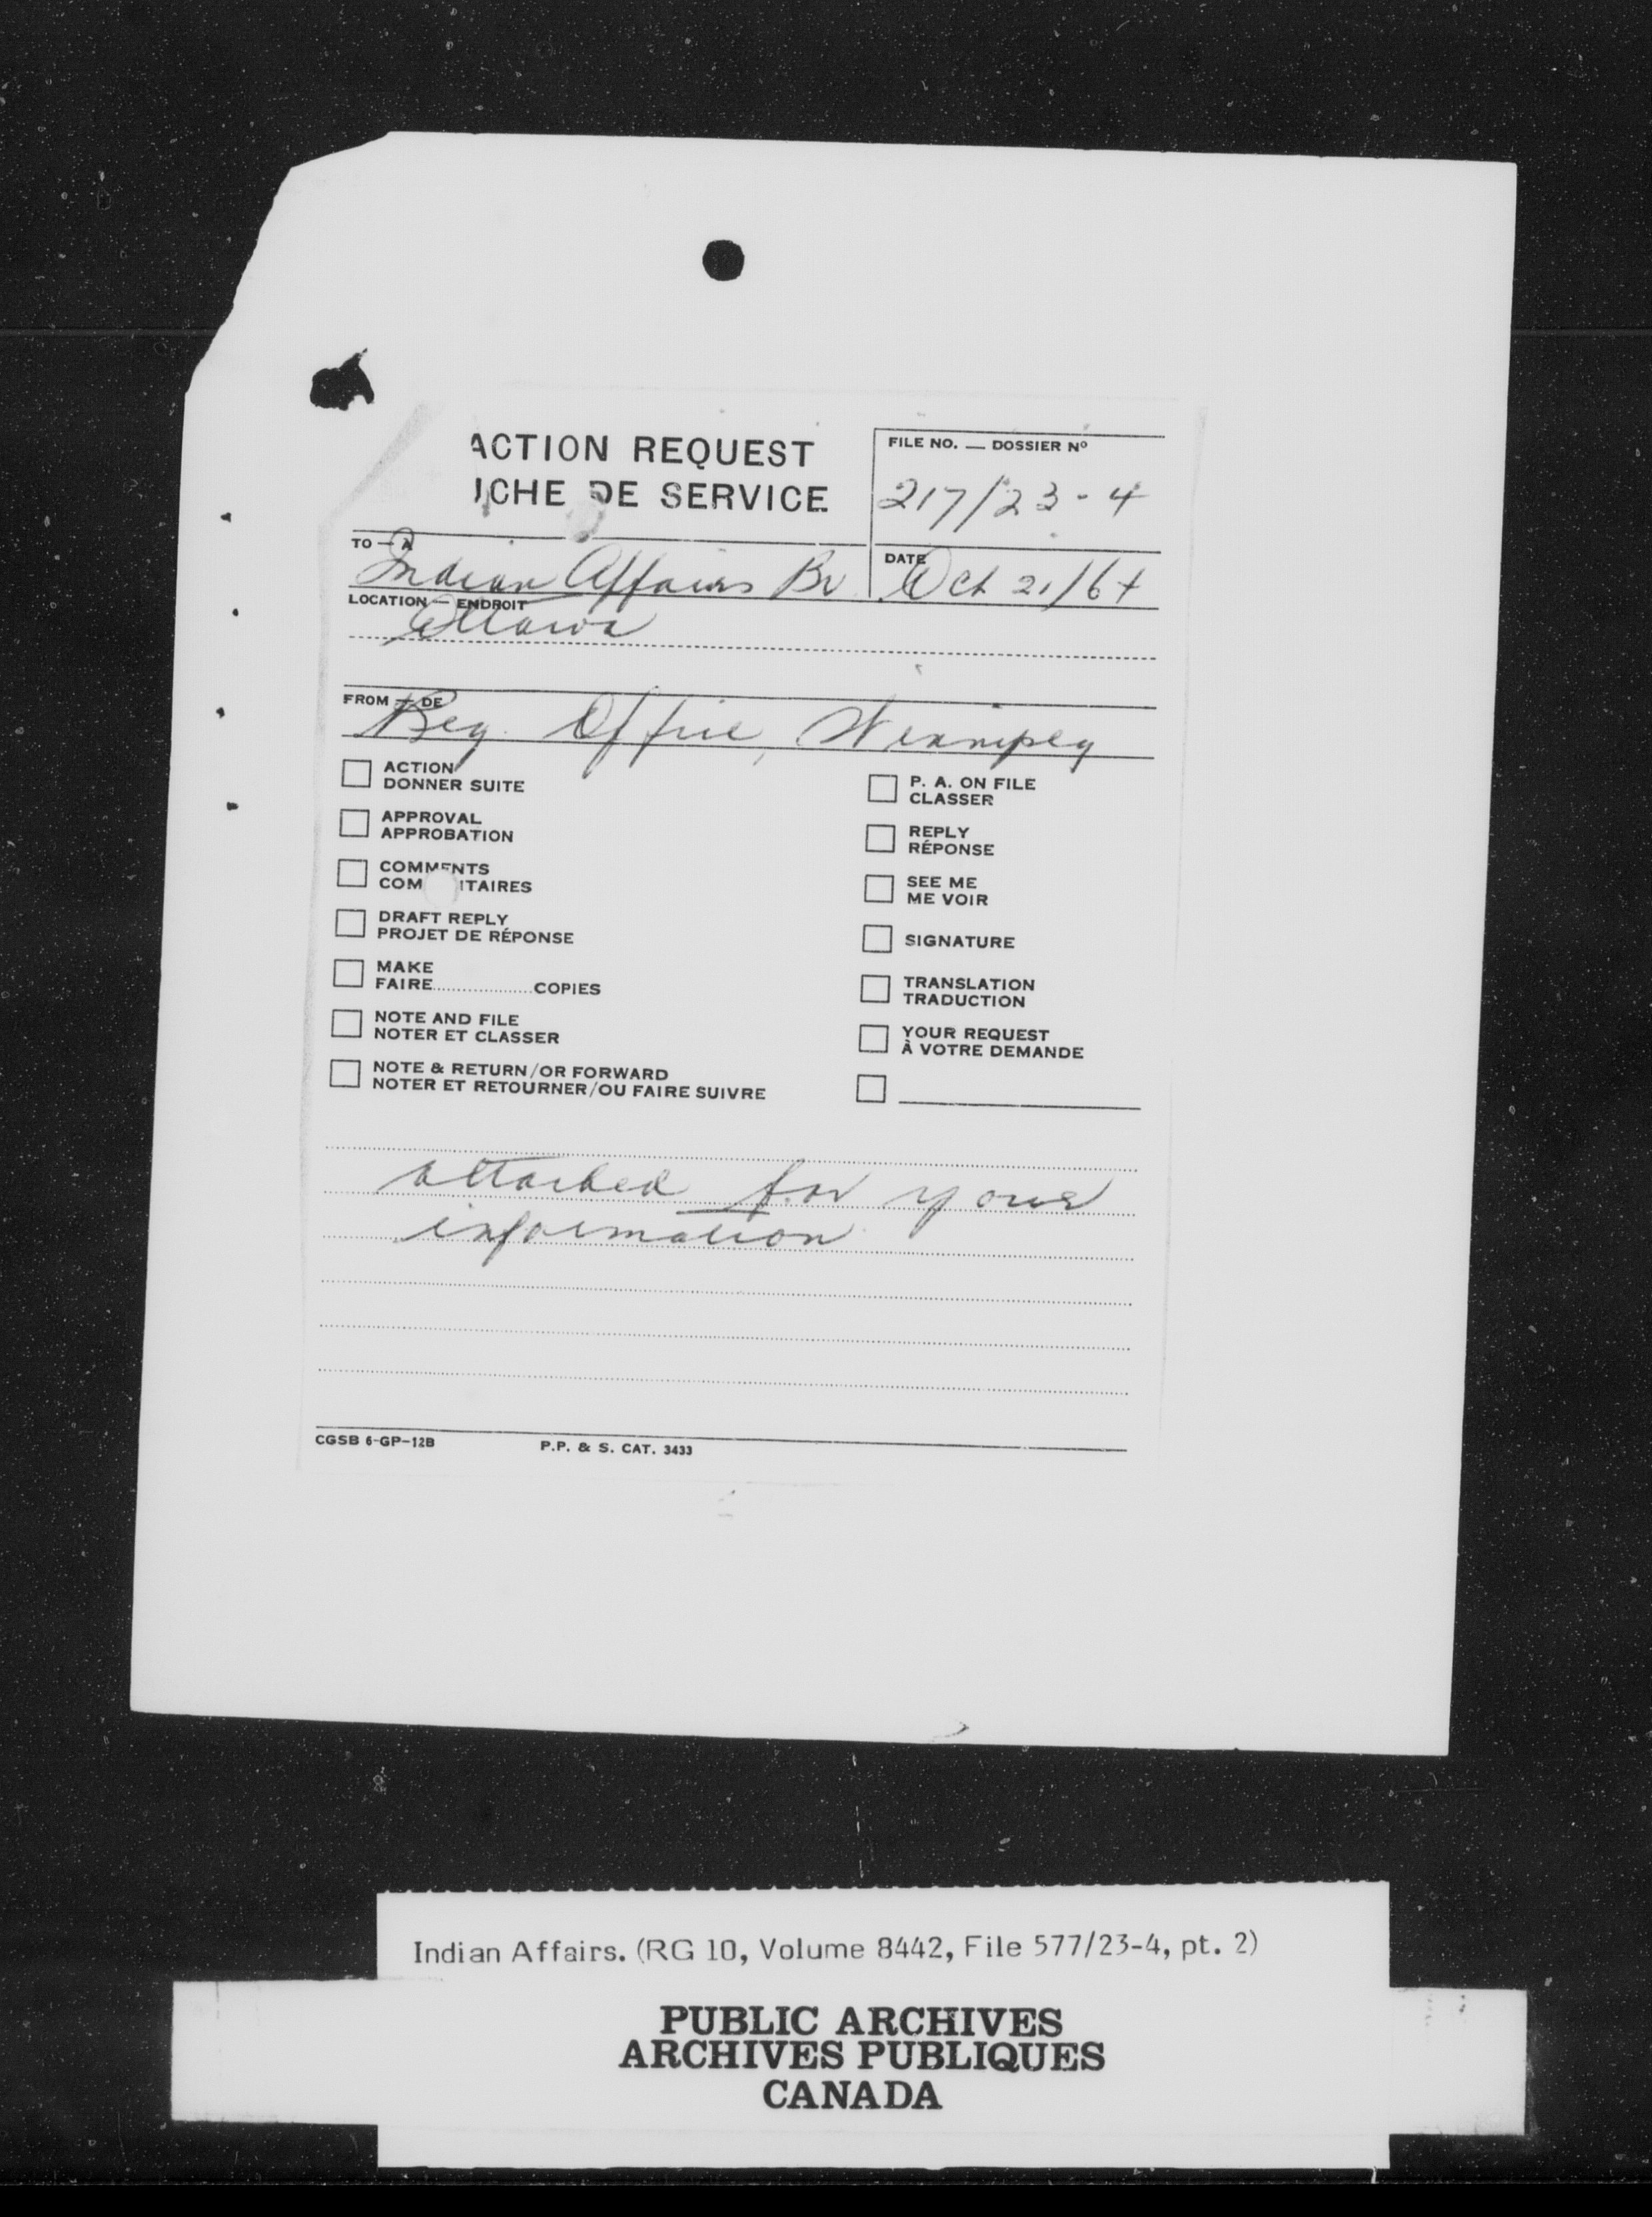 ACTION REQUEST
ICHE DE SERVICE
FILE NO. — DOSSIER Nº
217/23-4
TO — A
Indian Affairs Br
DATE
Oct 21/64
LOCATION — ENDROIT
Ottawa
FROM — DE
Reg. Office, Winnipeg
ACTION
DONNER SUITE
APPROVAL
APPROBATION
COMMENTS
COM ITAIRES
DRAFT REPLY
PROJET DE RÉPONSE
MAKE
FAIRE..................COPIES
NOTE AND FILE
NOTER ET CLASSER
NOTE & RETURN/OR FORWARD
NOTER ET RETOURNER/OU FAIRE SUIVRE
P. A. ON FILE
CLASSER
REPLY
RÉPONSE
SEE ME
ME VOIR
SIGNATURE
TRANSLATION
TRADUCTION
YOUR REQUEST
À VOTRE DEMANDE
attached for your
information
CGSB 6-GP-12B P.P. & S. CAT. 3433
Indian Affairs. (RG 10, Volume 8442, File 577/23-4, pt. 2)
PUBLIC ARCHIVES
ARCHIVES PUBLIQUES
CANADA